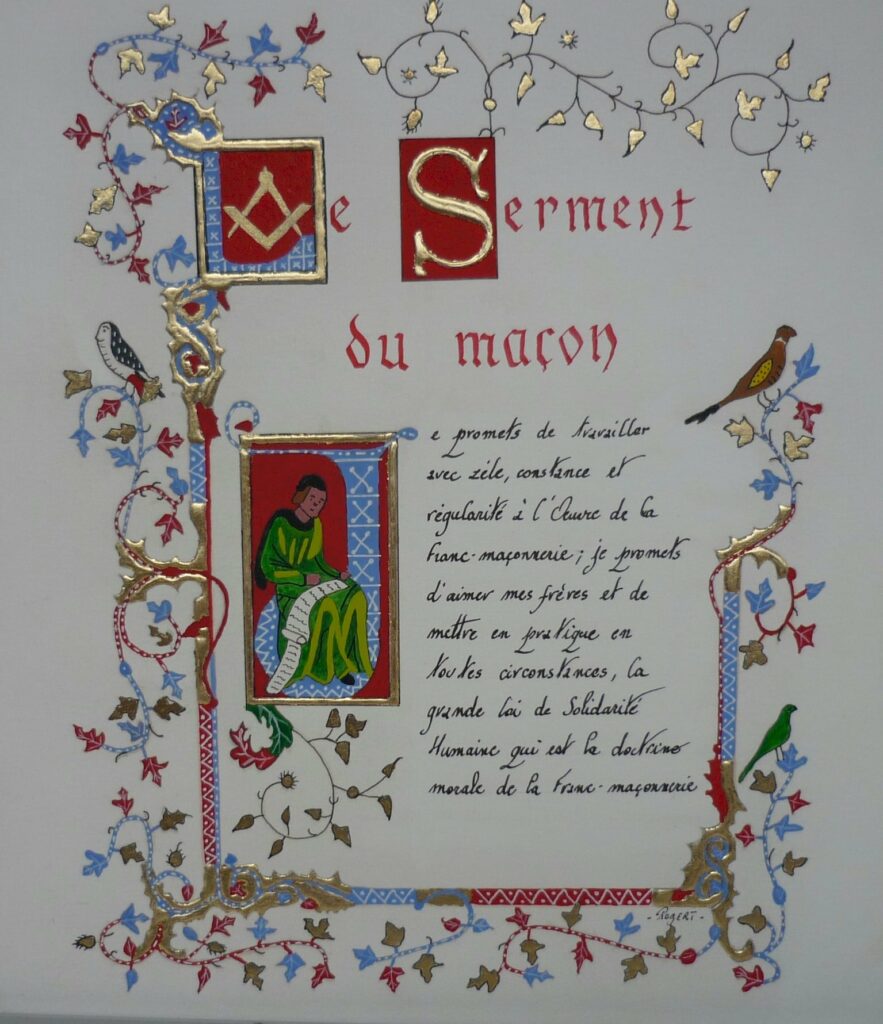 Le Serment
du maçon
Je promets de travailler
avec zèle, constance et
régularité à l'Œuvre de la
Franc-maçonnerie ; je promets
d'aimer mes frères et de
mettre en pratique en
toutes circonstances, la
grande loi de Solidarité
Humaine qui est la doctrine
morale de la Franc-maçonnerie